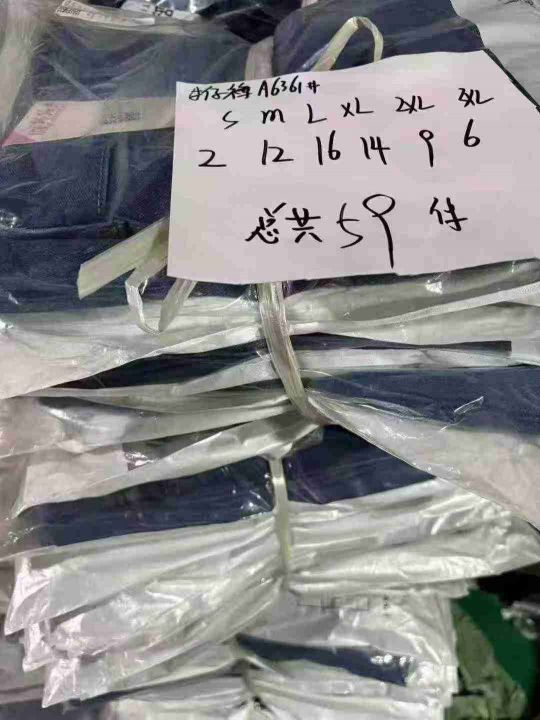 牛仔裤 A6361#
S M L XL 2XL 3XL
2 12 16 14 9 6
总共59件